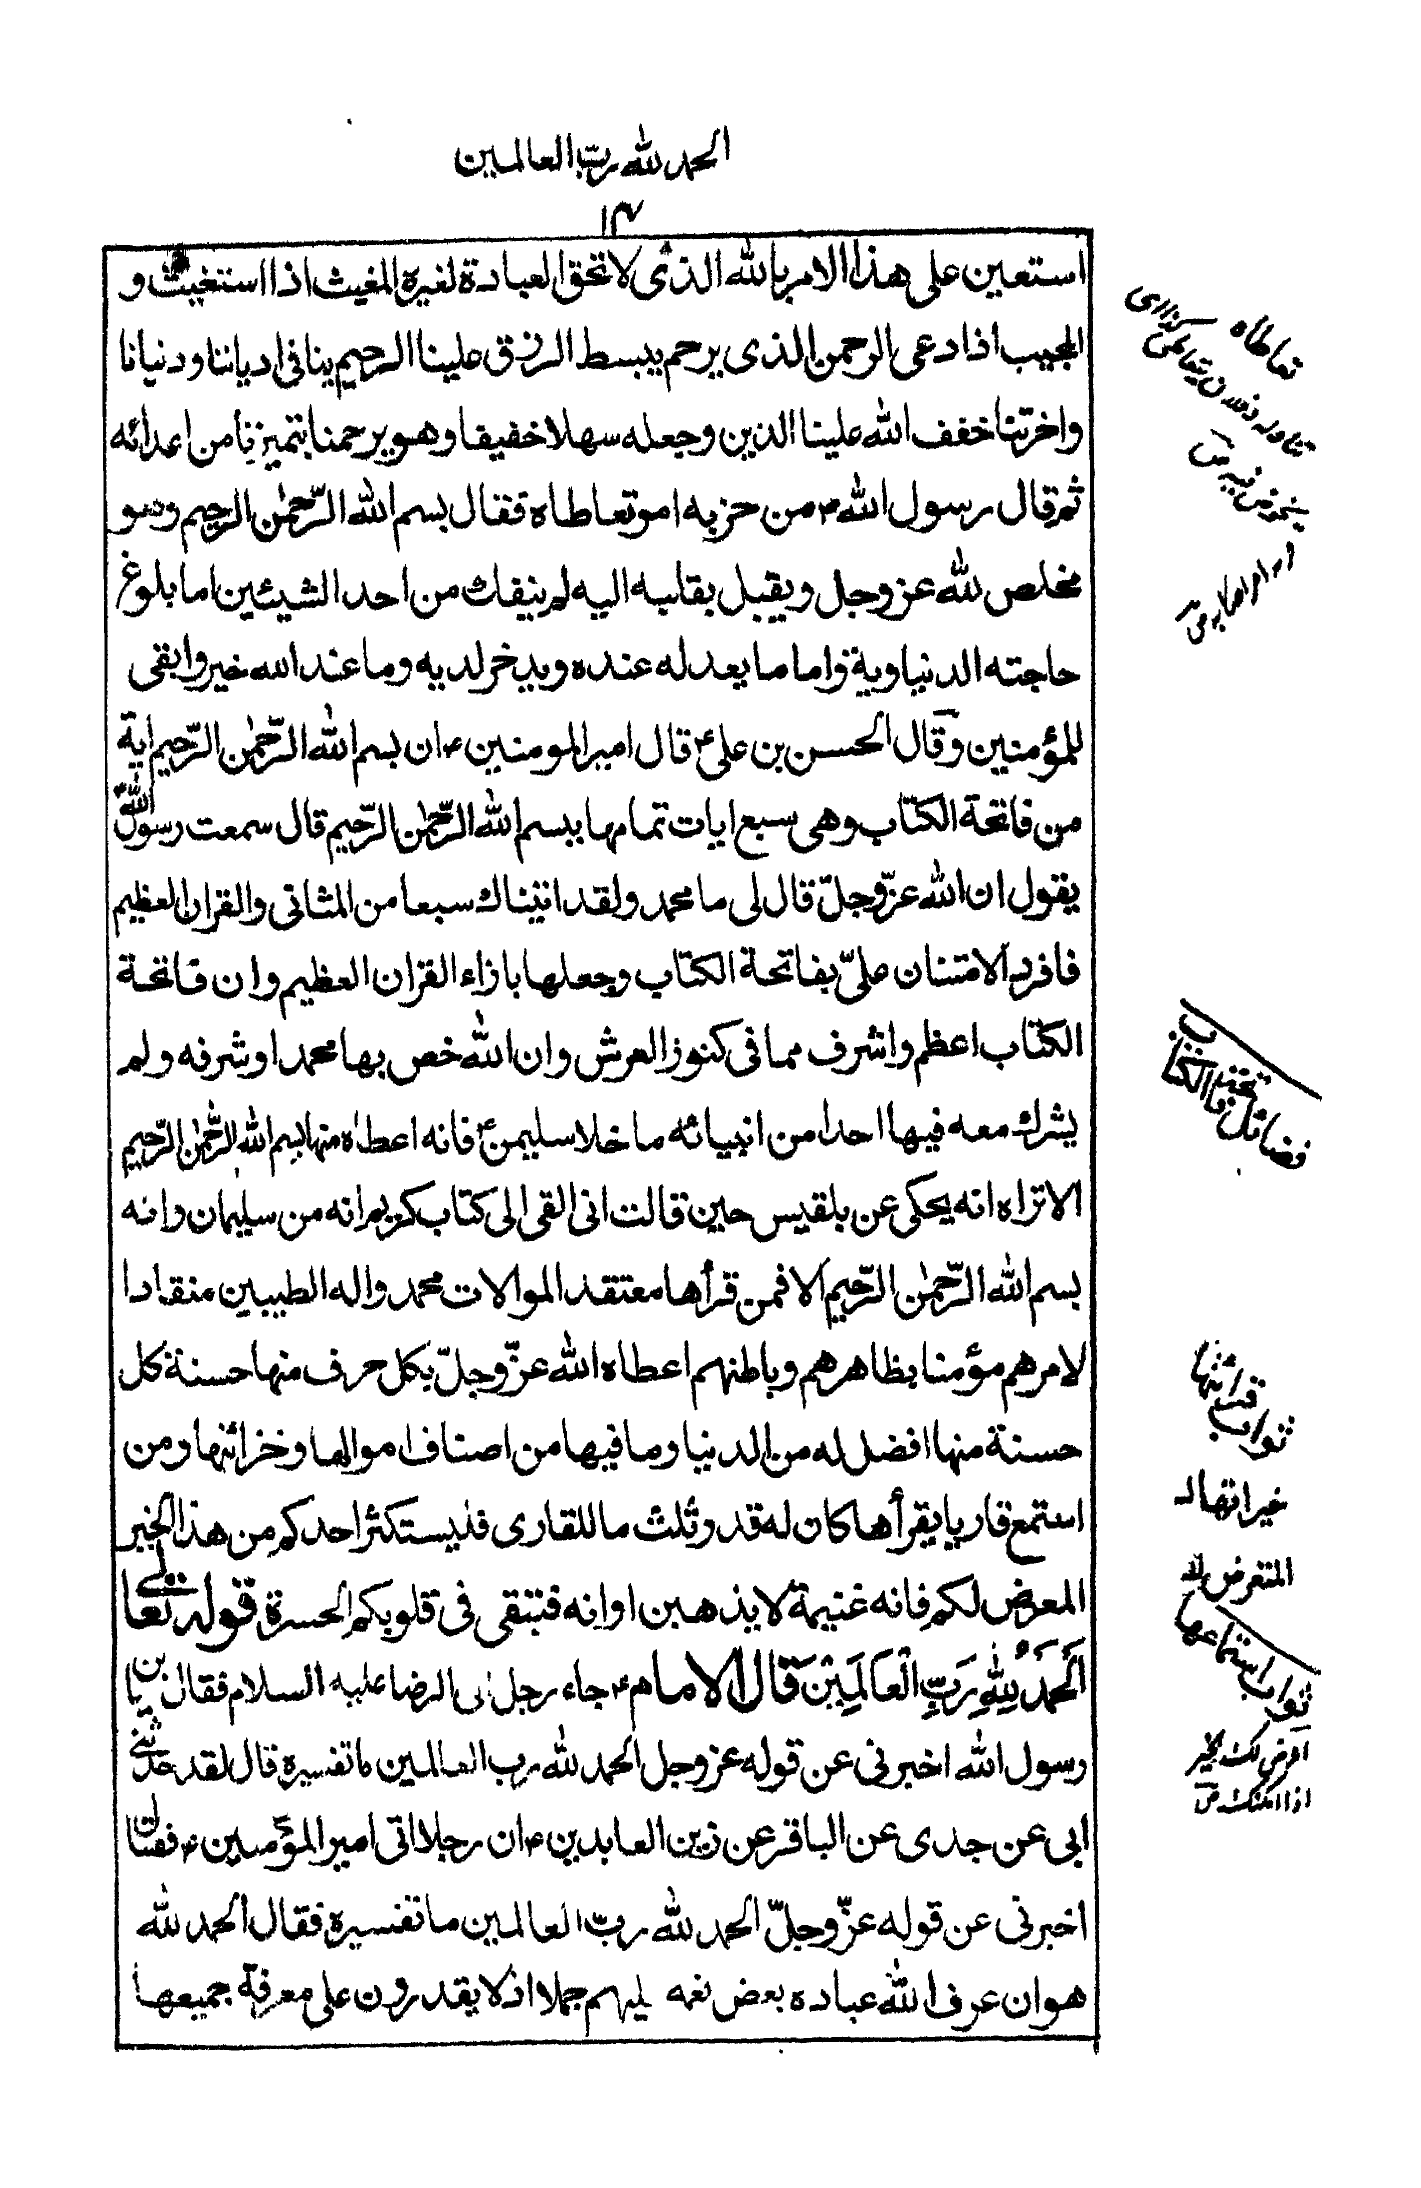 الحمد لله ربّ العالمين
١٤
استعين على هذا الامر بالله الذى لا تحق العبادة لغيره المغيث اذا استغيث و
المجيب اذا دعى الرحمن الذى يرحم يبسط الرزق علينا الرحيم بنا فى ادياننا ودنيانا
واخرتنا خفف الله علينا الدين وجعله سهلا خفيفا وهو يرحمنا بتميزنا من اعدائه
ثم قال رسول الله ص من حزبه امر تعاطاه فقال بسم الله الرّحمٰن الرحيم وهو
مخلص لله عز وجل ويقبل بقلبه اليه لم ينفك من احد الشيئين اما بلوغ
حاجته الدنياوية واما ما يعد له عنده ويدخر لديه وما عند الله خير وابقى
للمؤمنين وقال الحسن بن علىؑ قال امير المومنينؑ ان بسم الله الرّحمٰن الرّحيم اية
من فاتحة الكتاب وهى سبع ايات تمامها ببسم الله الرّحمٰن الرّحيم قال سمعت رسول الله
يقول ان الله عزّ وجلّ قال لى يا محمد ولقد اتيناك سبعا من المثانى والقران العظيم
فافرد الامتنان علىّ بفاتحة الكتاب وجعلها بازاء القران العظيم وان فاتحة
الكتاب اعظم واشرف مما فى كنوز العرش وان الله خص بها محمدا وشرفه ولم
يشرك معه فيها احدا من انبيائه ما خلا سليمنؑ فانه اعطاه منها بسم الله الرّحمٰن الرّحيم
الا تراه انه يحكى عن بلقيس حين قالت انى القى الى كتاب كريم انه من سليمان وانه
بسم الله الرّحمٰن الرّحيم الا فمن قرأها معتقد الموالات محمد واله الطيبين منقادا
لامرهم مؤمنا بظاهرهم وباطنهم اعطاه الله عزّ وجلّ بكل حرف منها حسنة كل
حسنة منها افضل له من الدنيا وما فيها من اصناف اموالها وخزائنها ومن
استمع قاريا يقرأها كان له قدر وثلث ما للقارى فليستكثر احدكم من هذا الخير
المعرض لكم فانه غنيمة لا يذهبن اوانه فتبقى فى قلوبكم الحسرة قوله تعالى
اَلْحَمْدُ لِلّٰهِ رَبِّ الْعَالَمِيْنَ قال الامامؑ جاء رجل الى الرضا عليه السلام فقال يا بن
رسول الله اخبرنى عن قوله عز وجل الحمد لله رب العالمين ما تفسيره قال لقد حدثنى
ابى عن جدى عن الباقر عن زين العابدينؑ ان رجلا اتى امير المؤمنينؑ فقال
اخبرنى عن قوله عزّ وجلّ الحمد لله ربّ العالمين ما تفسيره فقال الحمد لله
هو ان عرف الله عباده بعض نعمه عليهم جملا اذ لا يقدرون على معرفة جميعها
تعاطاه
فضائل فاتحة الكتاب
ثواب قرائتها
ثواب استماعها